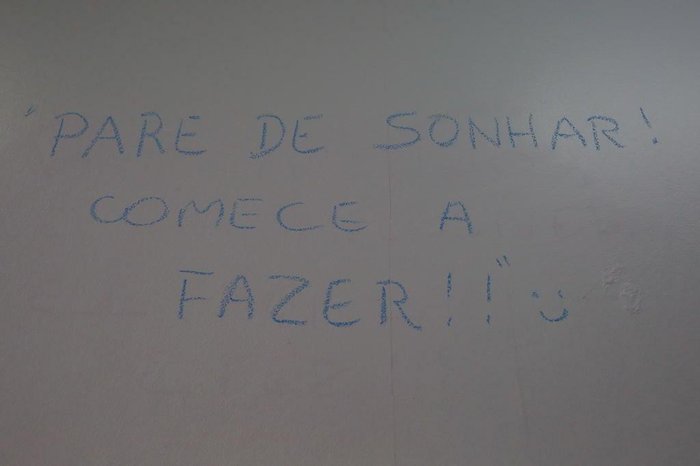 "PARE DE SONHAR!
COMECE A
FAZER!!" :)